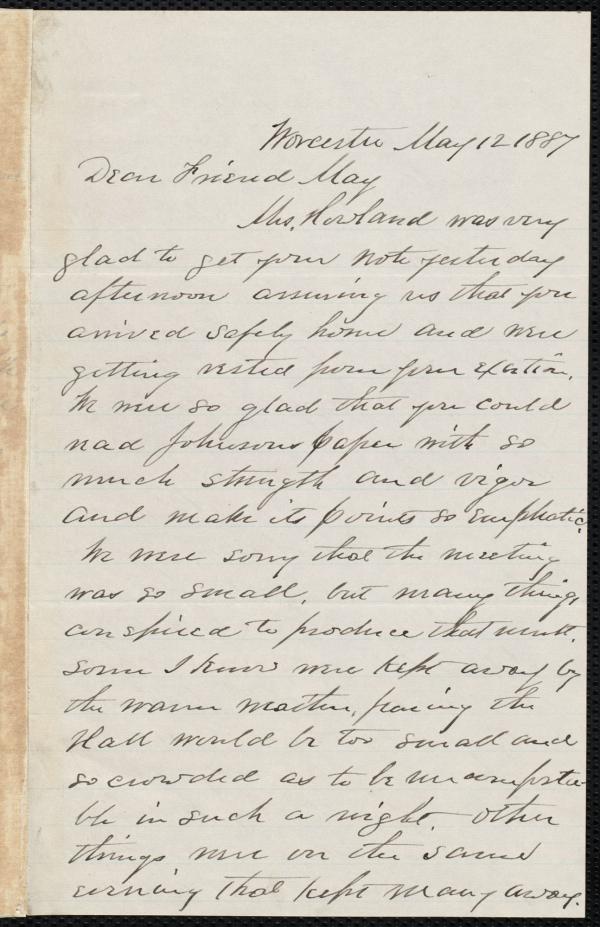 Worcester May 12 1887
Dear Friend May
Mrs. Howland was very
glad to get your note yesterday
afternoon assuring us that you
arrived safely home and were
getting rested from your exertion.
We were so glad that you could
read Johnsons paper with so
much strength and vigor
and make its points so emphatic.
We were sorry that the meeting
was so small, but many things
conspired to produce that result.
some I know were kept away by
the warm weather, fearing the
Hall would be too small and
so crowded as to be uncomforta-
ble in such a night. other
things were on the same
evening that kept many away.